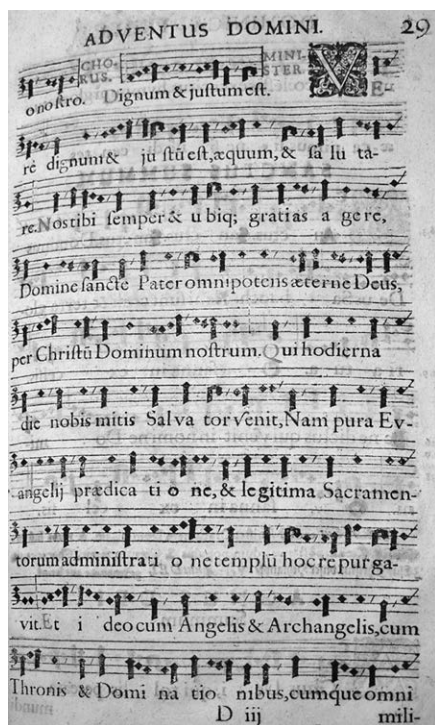 ADVENTUS DOMINI. 29
CHO-
RUS.
MINI-
STER
o nostro. Dignum & justum est. VE-
rè dignum & ju stū est, æquum, & sa lu ta-
re. Nos tibi semper & u biq; gratias a gere,
Domine sancte Pater omnipotens æterne Deus,
per Christū Dominum nostrum. Qui hodierna
die nobis mitis Salva tor venit, Nam pura Ev-
angelij prædica ti o ne, & legitima Sacramen-
torum administrati o ne templū hoc repurga-
vit. Et i deo cum Angelis & Archangelis, cum
Thronis & Domi na tio nibus, cumque omni
D iij mili-